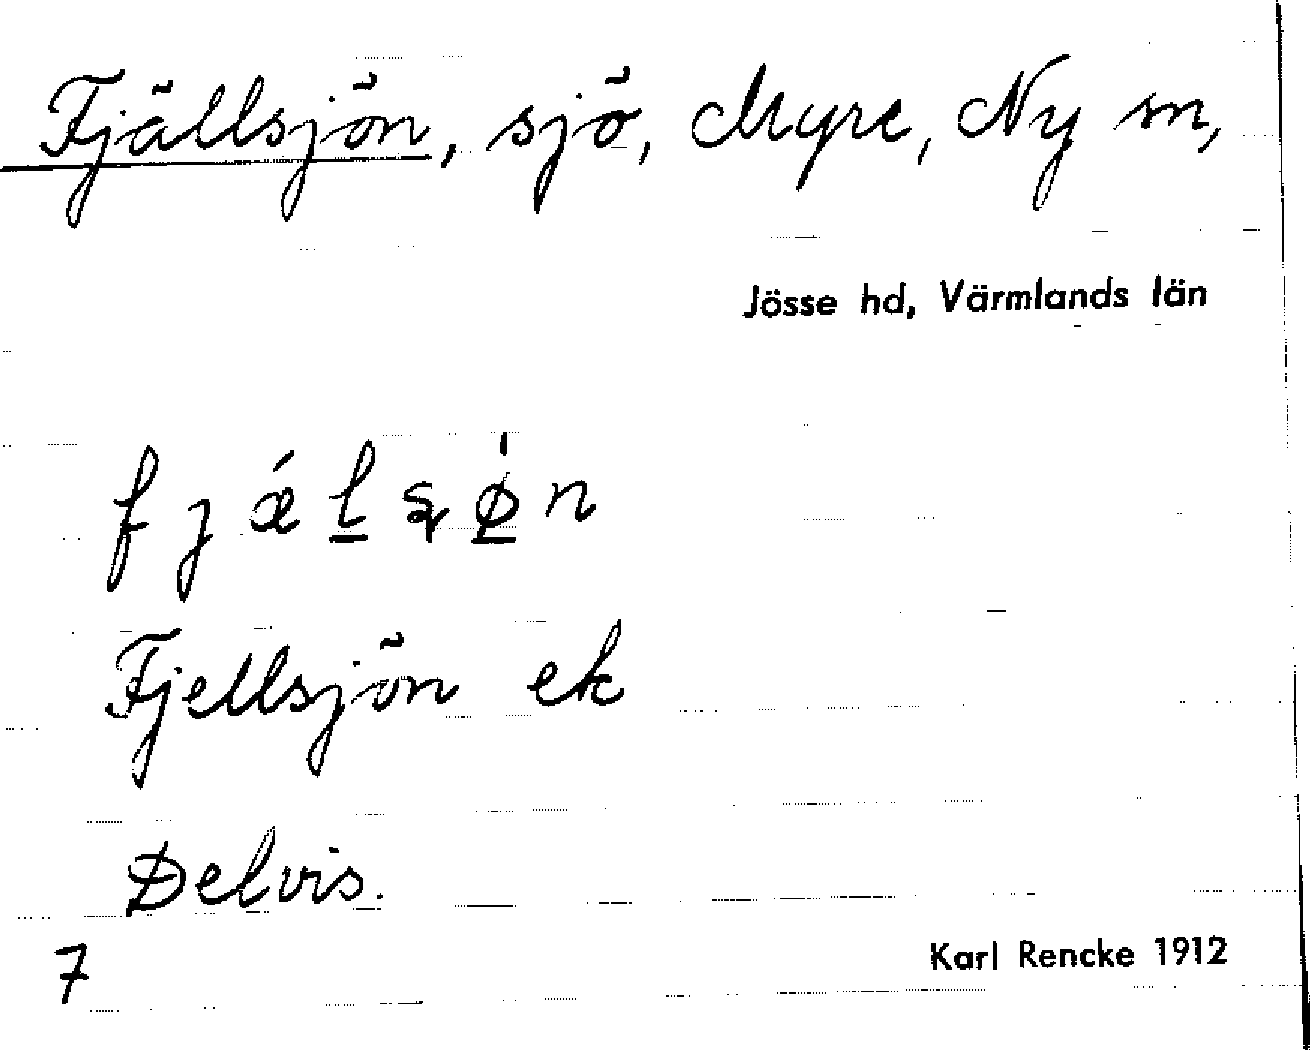 Fjällsjön, sjö, Myre, Ny sn,
Jösse hd, Värmlands län
fjǽl̲ʂø̲̍n
Fjellsjön ek
Delvis.
7
Karl Rencke 1912